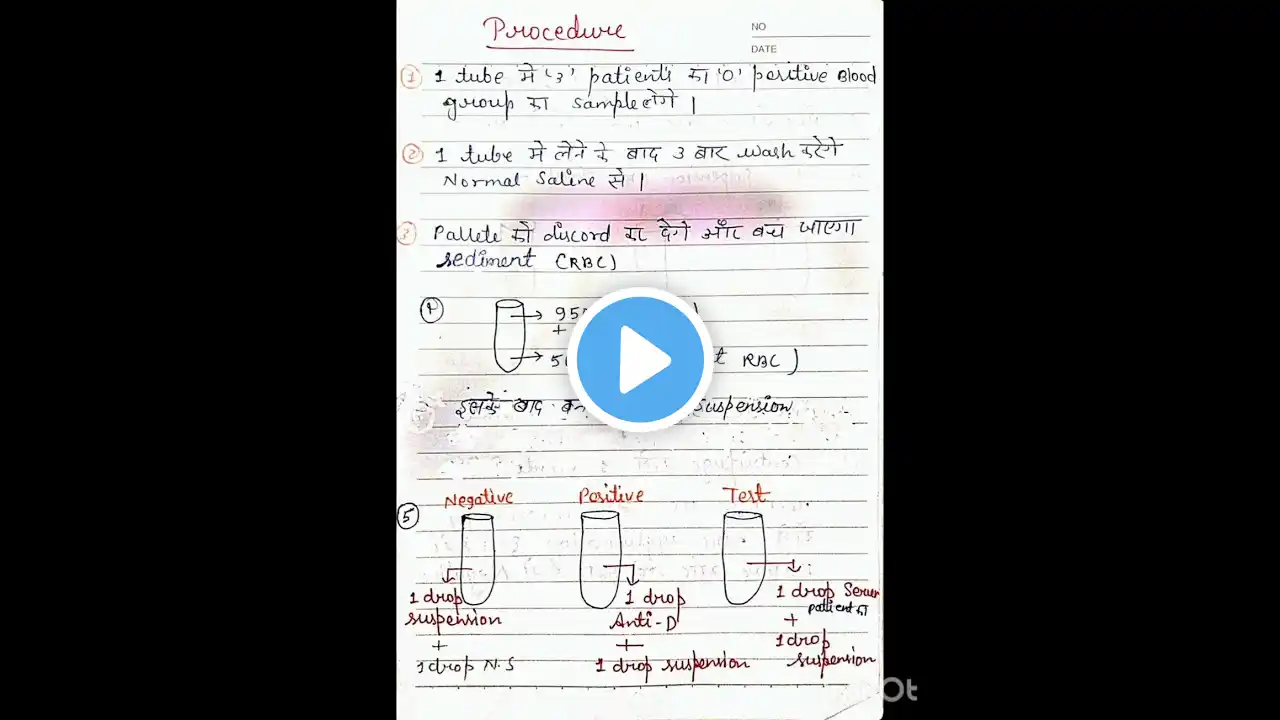 Procedure
NO
DATE
① 1 tube में '3' patients का 'O' positive Blood
group का sample लेंगे |
② 1 tube में लेने के बाद 3 बार wash करेंगे
Normal Saline से |
3 Pallete को discord कर देंगे और बच जाएगा
sediment (RBC)
→ 95
+
→ 5
RBC)
इसके बाद
suspension
⑤ Negative Positive Test
1 drop
suspension
+
1 drop N.S
1 drop
Anti-D
+
1 drop suspension
1 drop Serum
patient का
+
1 drop
suspension